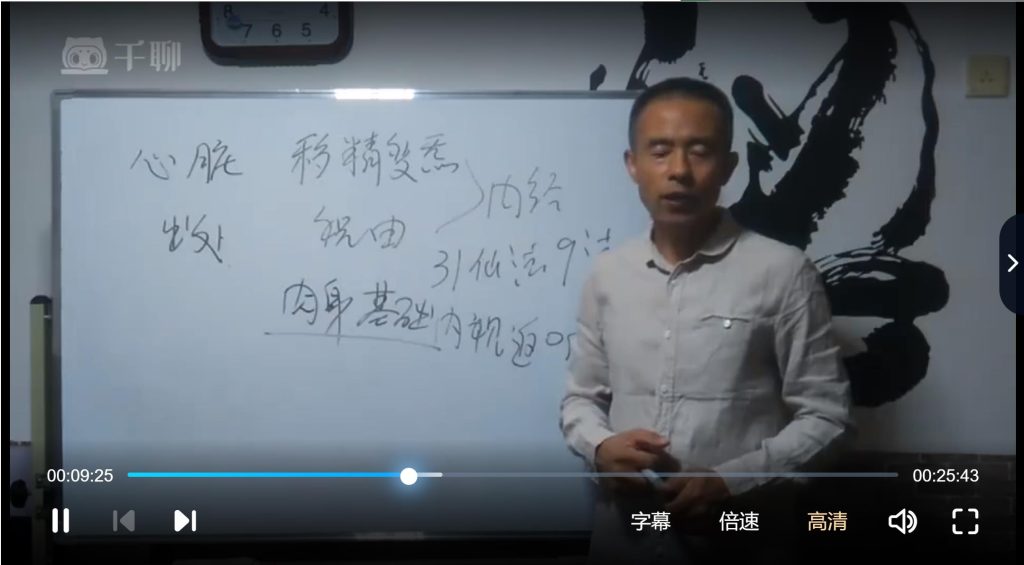 8 7 6 5 4
千聊
心脏 移精变炁
内经
出处 祝由
引仙法9法
肉身基础 内视返
00:09:25 00:25:43
字幕 倍速 高清